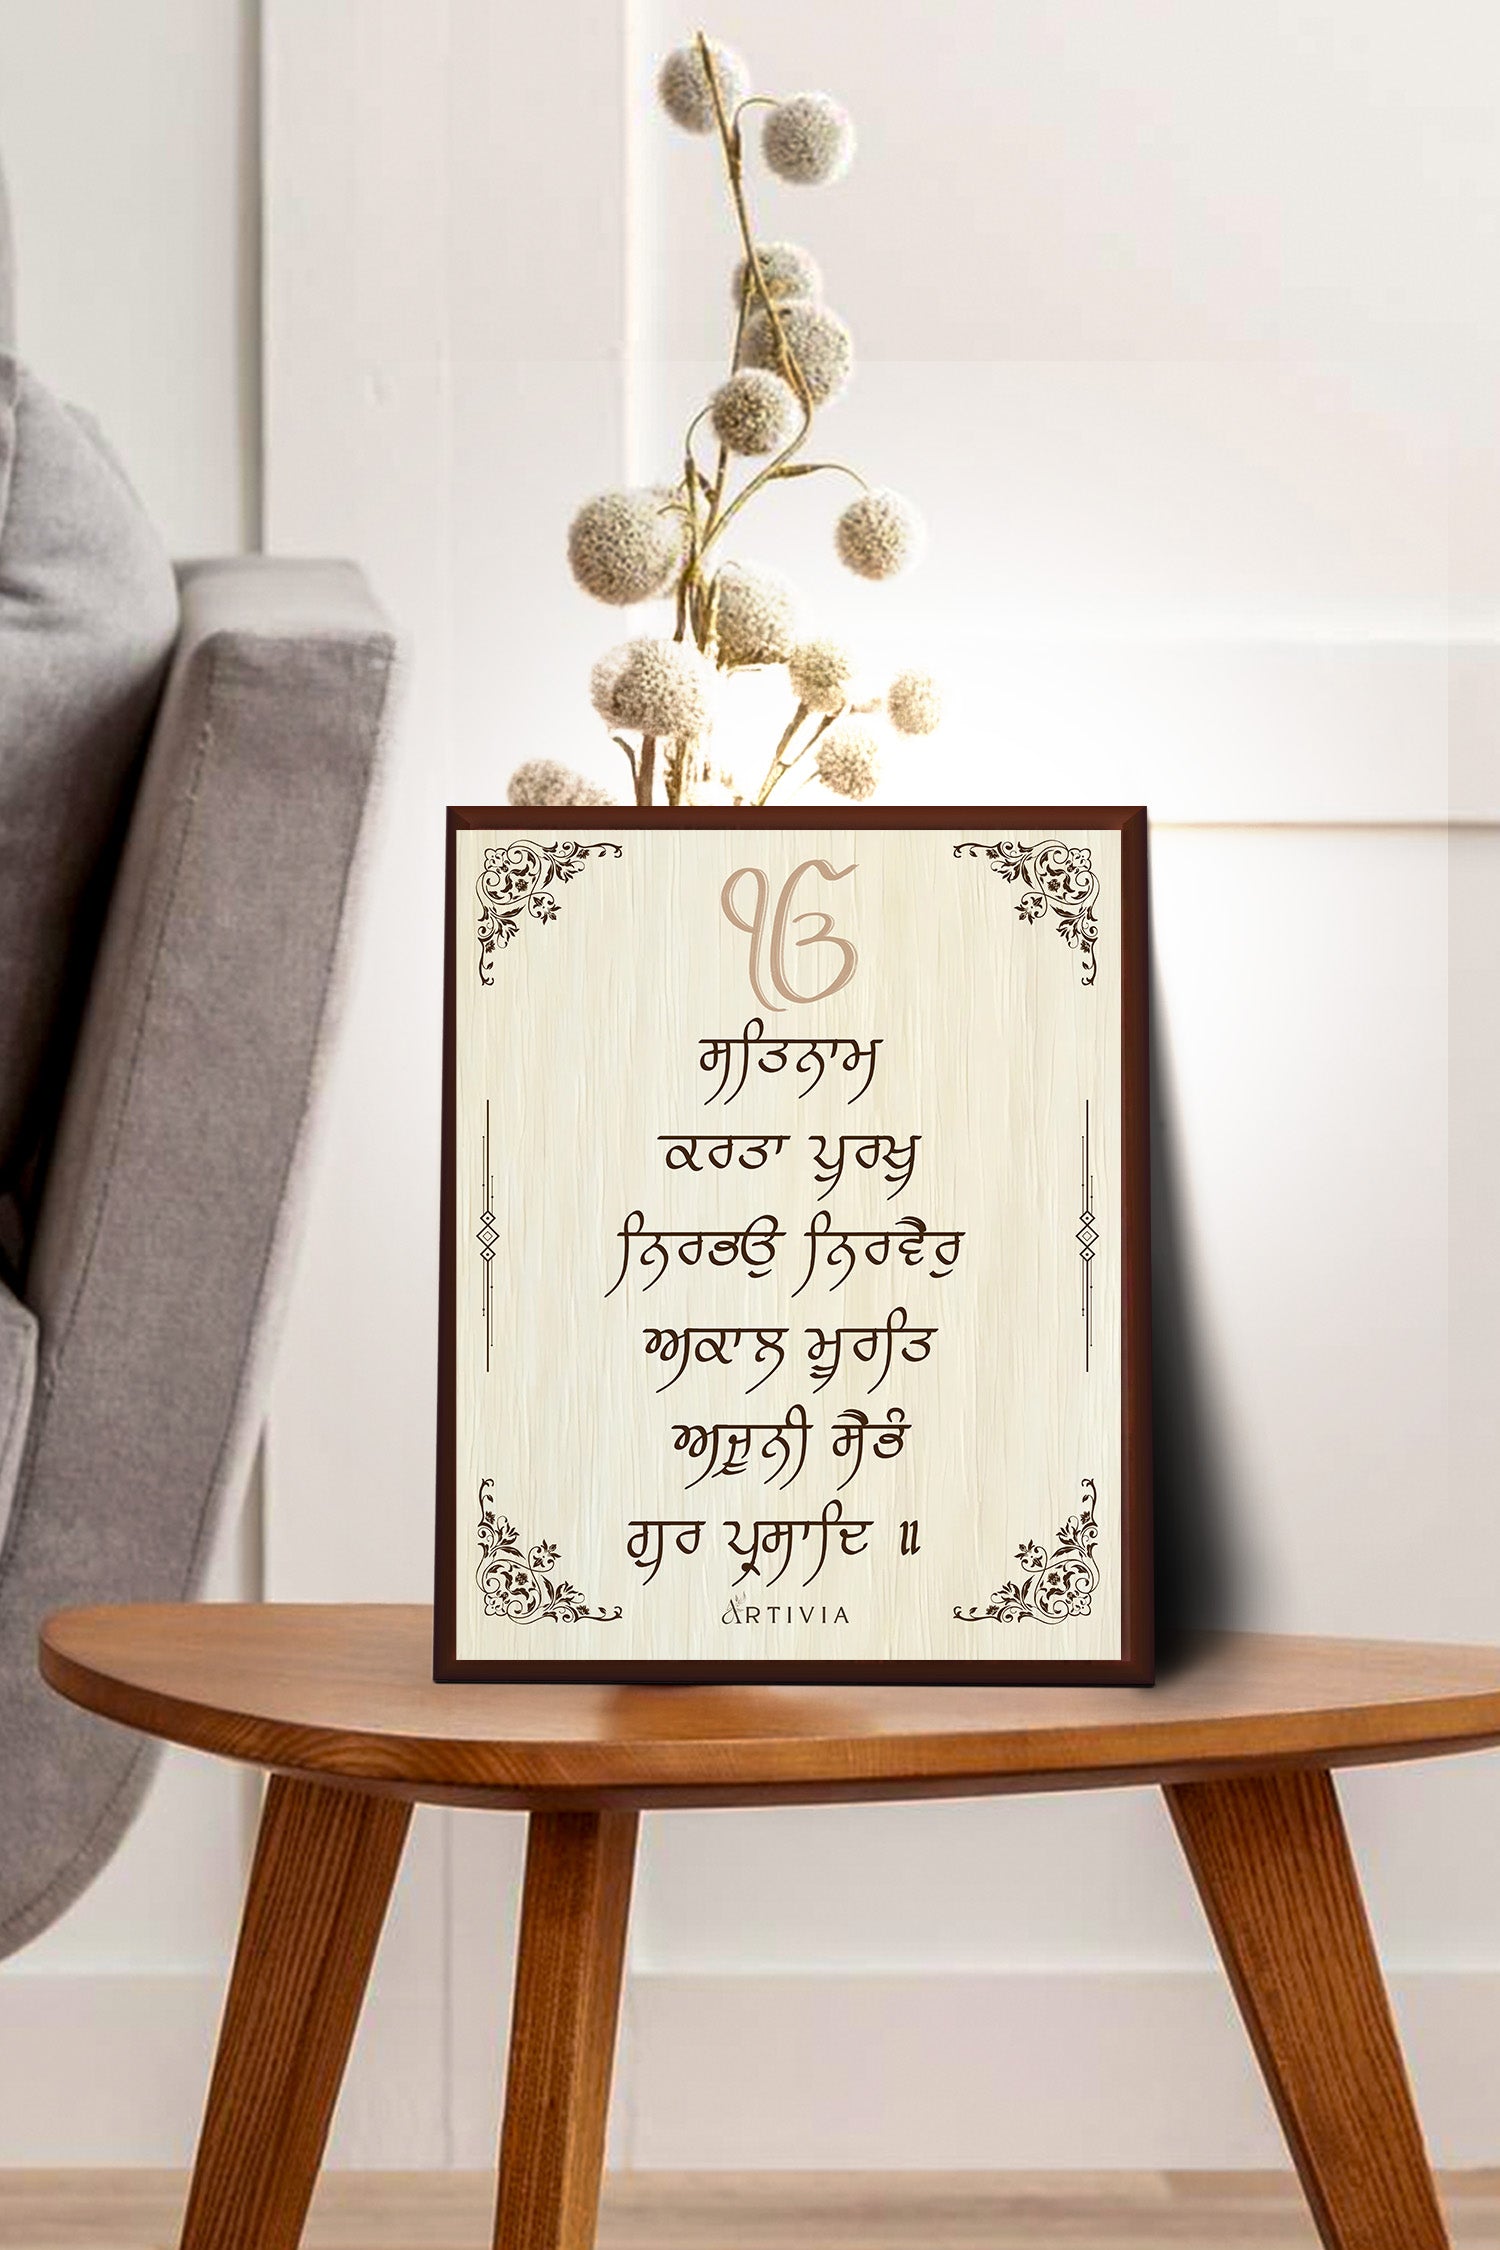 ੴ
ਸਤਿਨਾਮ
ਕਰਤਾ ਪੁਰਖੁ
ਨਿਰਭਉ ਨਿਰਵੈਰੁ
ਅਕਾਲ ਮੂਰਤਿ
ਅਜੂਨੀ ਸੈਭੰ
ਗੁਰ ਪ੍ਰਸਾਦਿ ॥
ARTIVIA